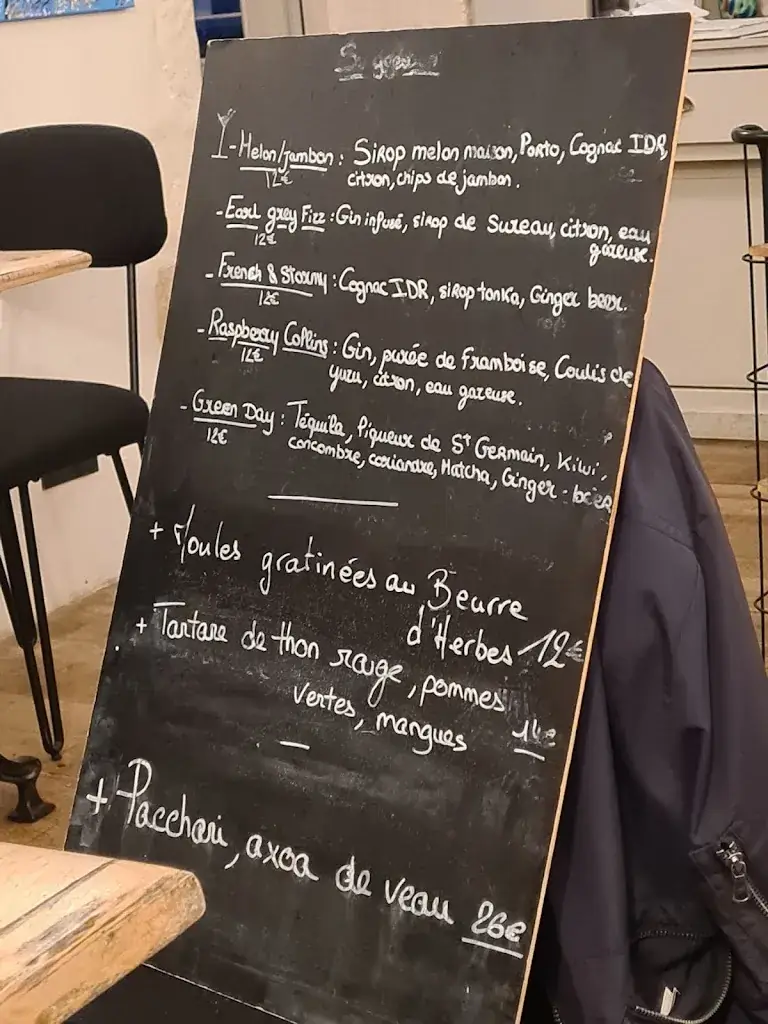 Suggestions
- Melon/Jambon : Sirop melon maison, Porto, Cognac IDR,
12€ citron, chips de jambon.
- Earl grey Fizz : Gin infusé, sirop de Sureau, citron, eau
12€ gazeuse.
- French & Stormy : Cognac IDR, sirop tonka, Ginger beer.
12€
- Raspberry Collins : Gin, purée de Framboise, Coulis de
12€ yuzu, citron, eau gazeuse.
- Green Day : Téquila, liqueur de St Germain, Kiwi,
12€ concombre, coriandre, Matcha, Ginger-beer
+ Moules gratinées au Beurre
d'Herbes 12€
+ Tartare de thon rouge, pommes
vertes, mangues 14€
+ Paccheri, axoa de veau 26€